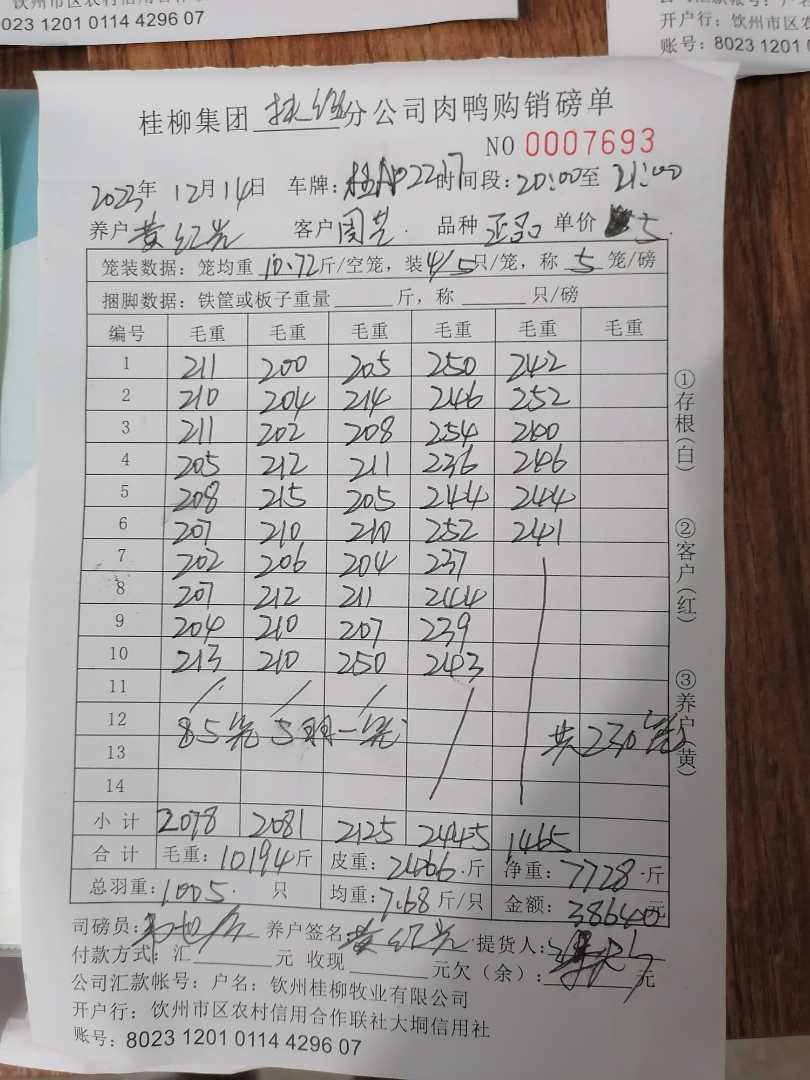 钦州市区农村信用合作
8023 1201 0114 4296 07
开户行：钦州市区农
账号：8023 1201 0
桂柳集团 分公司肉鸭购销磅单
NO 0007693
2023年 12月 14日 车牌：桂 02217 时间段：20:00至 21:00
养户 黄红光 客户 周 品种 正品 单价 5.
笼装数据：笼均重 10.72 斤/空笼，装 4/5 只/笼，称 5 笼/磅
捆脚数据：铁筐或板子重量 斤，称 只/磅
编号 毛重 毛重 毛重 毛重 毛重 毛重
1 211 200 205 250 242
2 210 204 214 246 252
3 211 202 208 254 240
4 205 212 211 236 246
5 208 215 205 244 244
6 207 210 210 252 241
7 202 206 204 237
8 207 212 211 244
9 204 210 207 239
10 213 210 250 243
11
12 85笼 5羽一笼 共230笼
13
14
小计 2078 2081 2125 2445 1465
合计 毛重：10194斤 皮重：2466.斤 净重：7728.斤
总羽重：1005. 只 均重：7.68 斤/只 金额：38640元
司磅员： 养户签名 黄红光 提货人：
付款方式：汇 元 收现 元欠（余）： 元
公司汇款帐号：户名：钦州桂柳牧业有限公司
开户行：钦州市区农村信用合作联社大垌信用社
账号：8023 1201 0114 4296 07
①存根（白）
②客户（红）
③养户（黄）